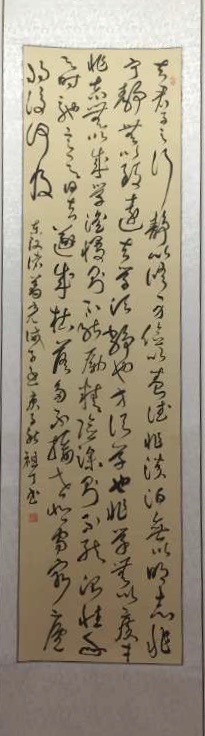 夫君子之行静以修身俭以养德非淡泊无以明志非
宁静无以致远夫学须静也才须学也非学无以广才
非志无以成学淫慢则不能励精险躁则不能治性年
与时驰意与日去遂成枯落多不接世悲守穷庐
将复何及
东汉诸葛亮诫子书庚子秋祖丁书